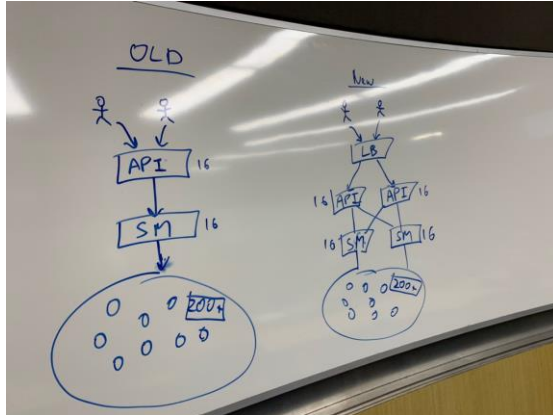 OLD
API 16
SM 16
200+
New
LB
16 API API 16
16 SM SM 16
200+